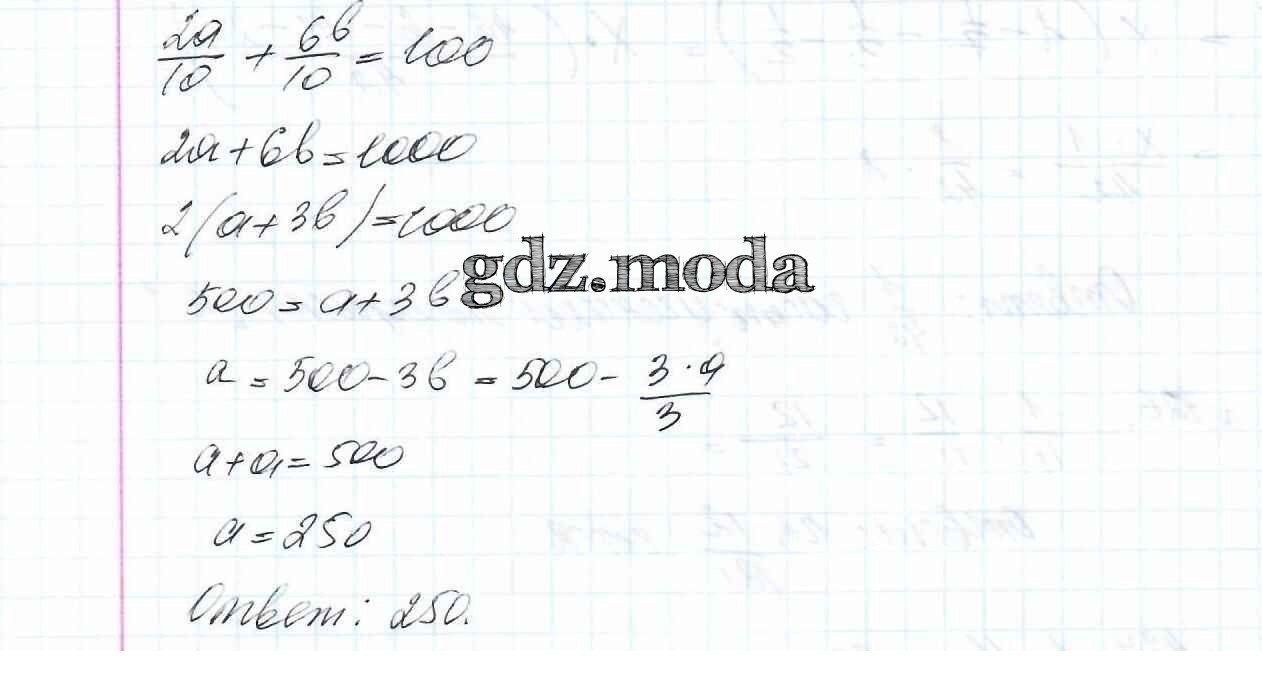 2a/10 + 6b/10 = 100
2a+6b=1000
2(a+3b)=1000
gdz.moda
500=a+3b
a=500-3b=500- 3·a/3
a+a=500
a=250
Ответ: 250.